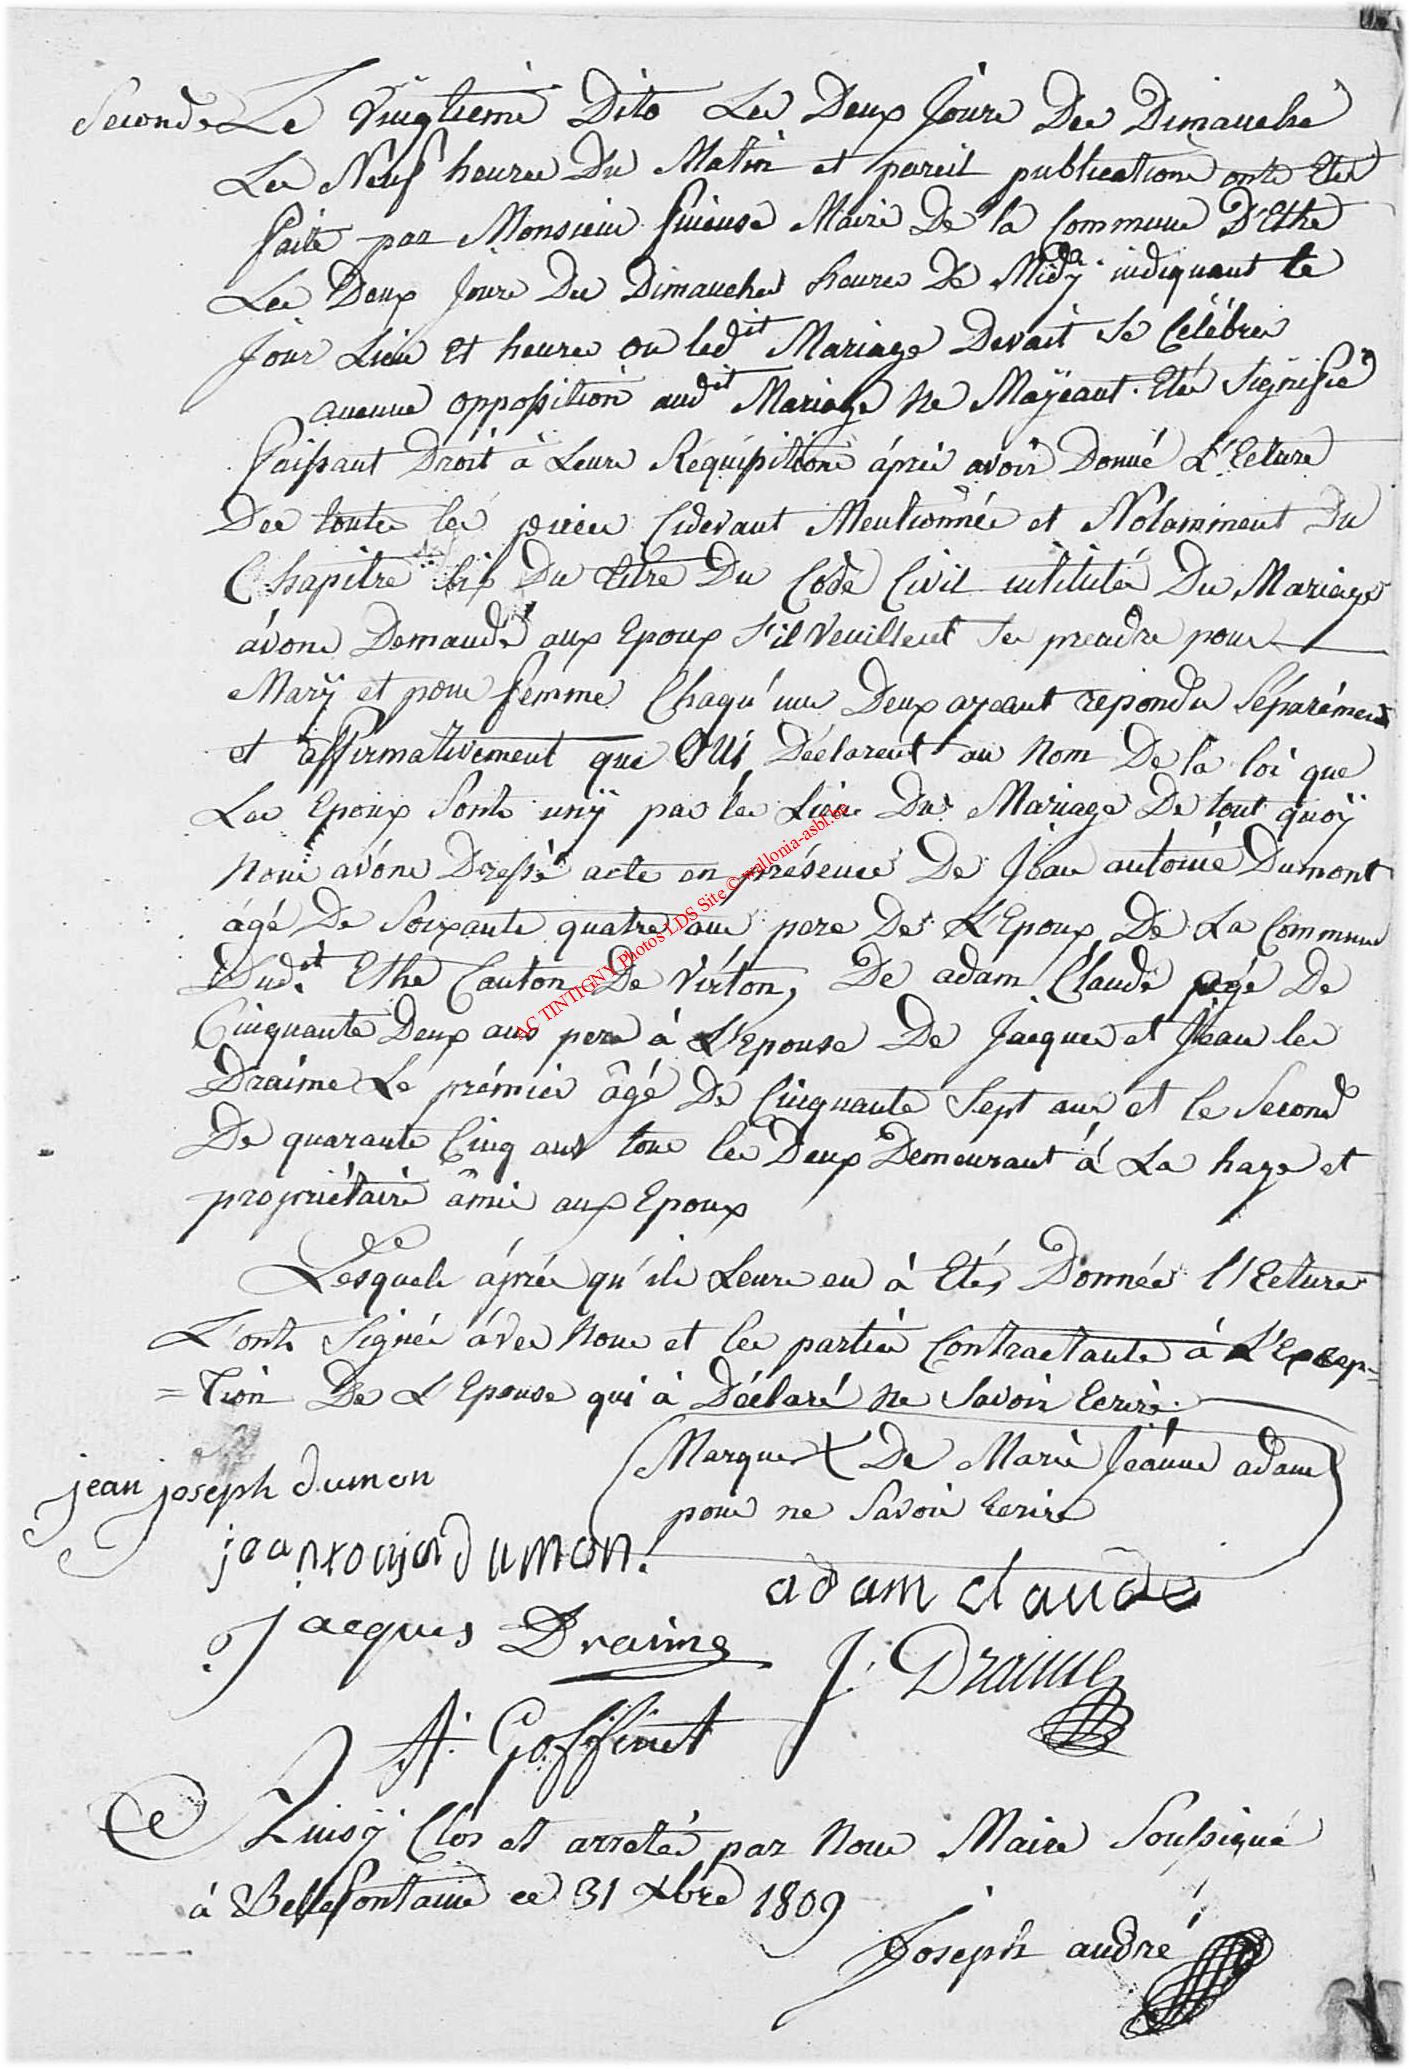 Seconde Le Vingtiemè Dito Les Deux Jours Des Dimauche
Les Neuf heures Du Matin et pareil publications onts Etes
faite par Monsieur Guieuse Maire De la Commune D'Ethe
Les Deux Jours Des Dimauches heures De Midy indiquant le
Jour Lieu Et heures ou ledit Mariage Devait se Célébrer
aucune opposition audit Mariage Ne Mayeant Etés Signifié
faissant Dròit à Leurs Réquisitions áprès avoir Donné L'Ecture
Des toutes les pièces Cidevant Mentionnées et Notamment Du
Chapitre six Du titre Du Code Civil intitulé Du Mariage
ávons Demandé aux Epoux s'il Veuillent se prendre pour
Marÿ et pour femme Chaqu'un Deux ayeant repondu Séparément
et affirmativement que OUi, Déclarent au Nom De la loi que
Les Epoux Sonts unÿ par les Lien Du Mariage De tout quoÿ
Nous avóns Dressé acte en présence De Jean antoine Dumont
ágé De Soixante quatre ans pere De L'Epoux De La Commune
Dudit Ethe Canton De Virton, De adam Claude agé De
Cinquante Deux ans pere á L'Epouse De Jacques et Jean les
Draime Le prémier âgé De Cinquante Sept ans et le Second
De quarante Cinq ans tous les Deux Demeurant á La hage et
propriétaire âmis aux Epoux
Lesquels áprés qu'ils Leurs en á Etés Donnée l'Ecture
L'onts Signés áves Nous et les parties Contractante á L'Excep-
=tion De L'Epouse qui à Déclaré ne Savoir Ecrire.
Marque X De Marie Jeánne adam
pour ne Savoir Ecrire
jean joseph dumon
jeantonjoi dumon.
adam claude
jacques Draime
J. Draime
A. Goffinet
Ainsÿ Clós et arretés par Nous Maire Soussigné
á Bellefontaine ce 31 Xbre 1809
Joseph andré
AC TINTIGNY Photos LDS Site © wallonia-asbl.be